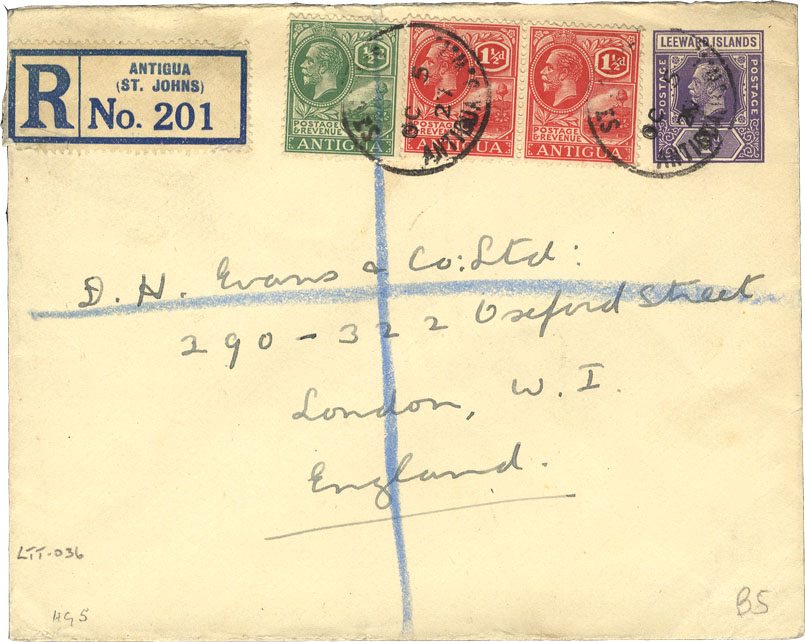 R
ANTIGUA
(ST. JOHNS)
No. 201
½d
POSTAGE
& REVENUE
ANTIGUA
1½d
POSTAGE
& REVENUE
ANTIGUA
1½d
POSTAGE
& REVENUE
ANTIGUA
LEEWARD ISLANDS
POSTAGE
POSTAGE
ST
OC 5
ANTIGUA
ST
OC 5
ANTIGUA
D. H. Evans & Co: Ltd:
290-322 Oxford Street
London, W. I.
England.
LTT-036
HG5
B5